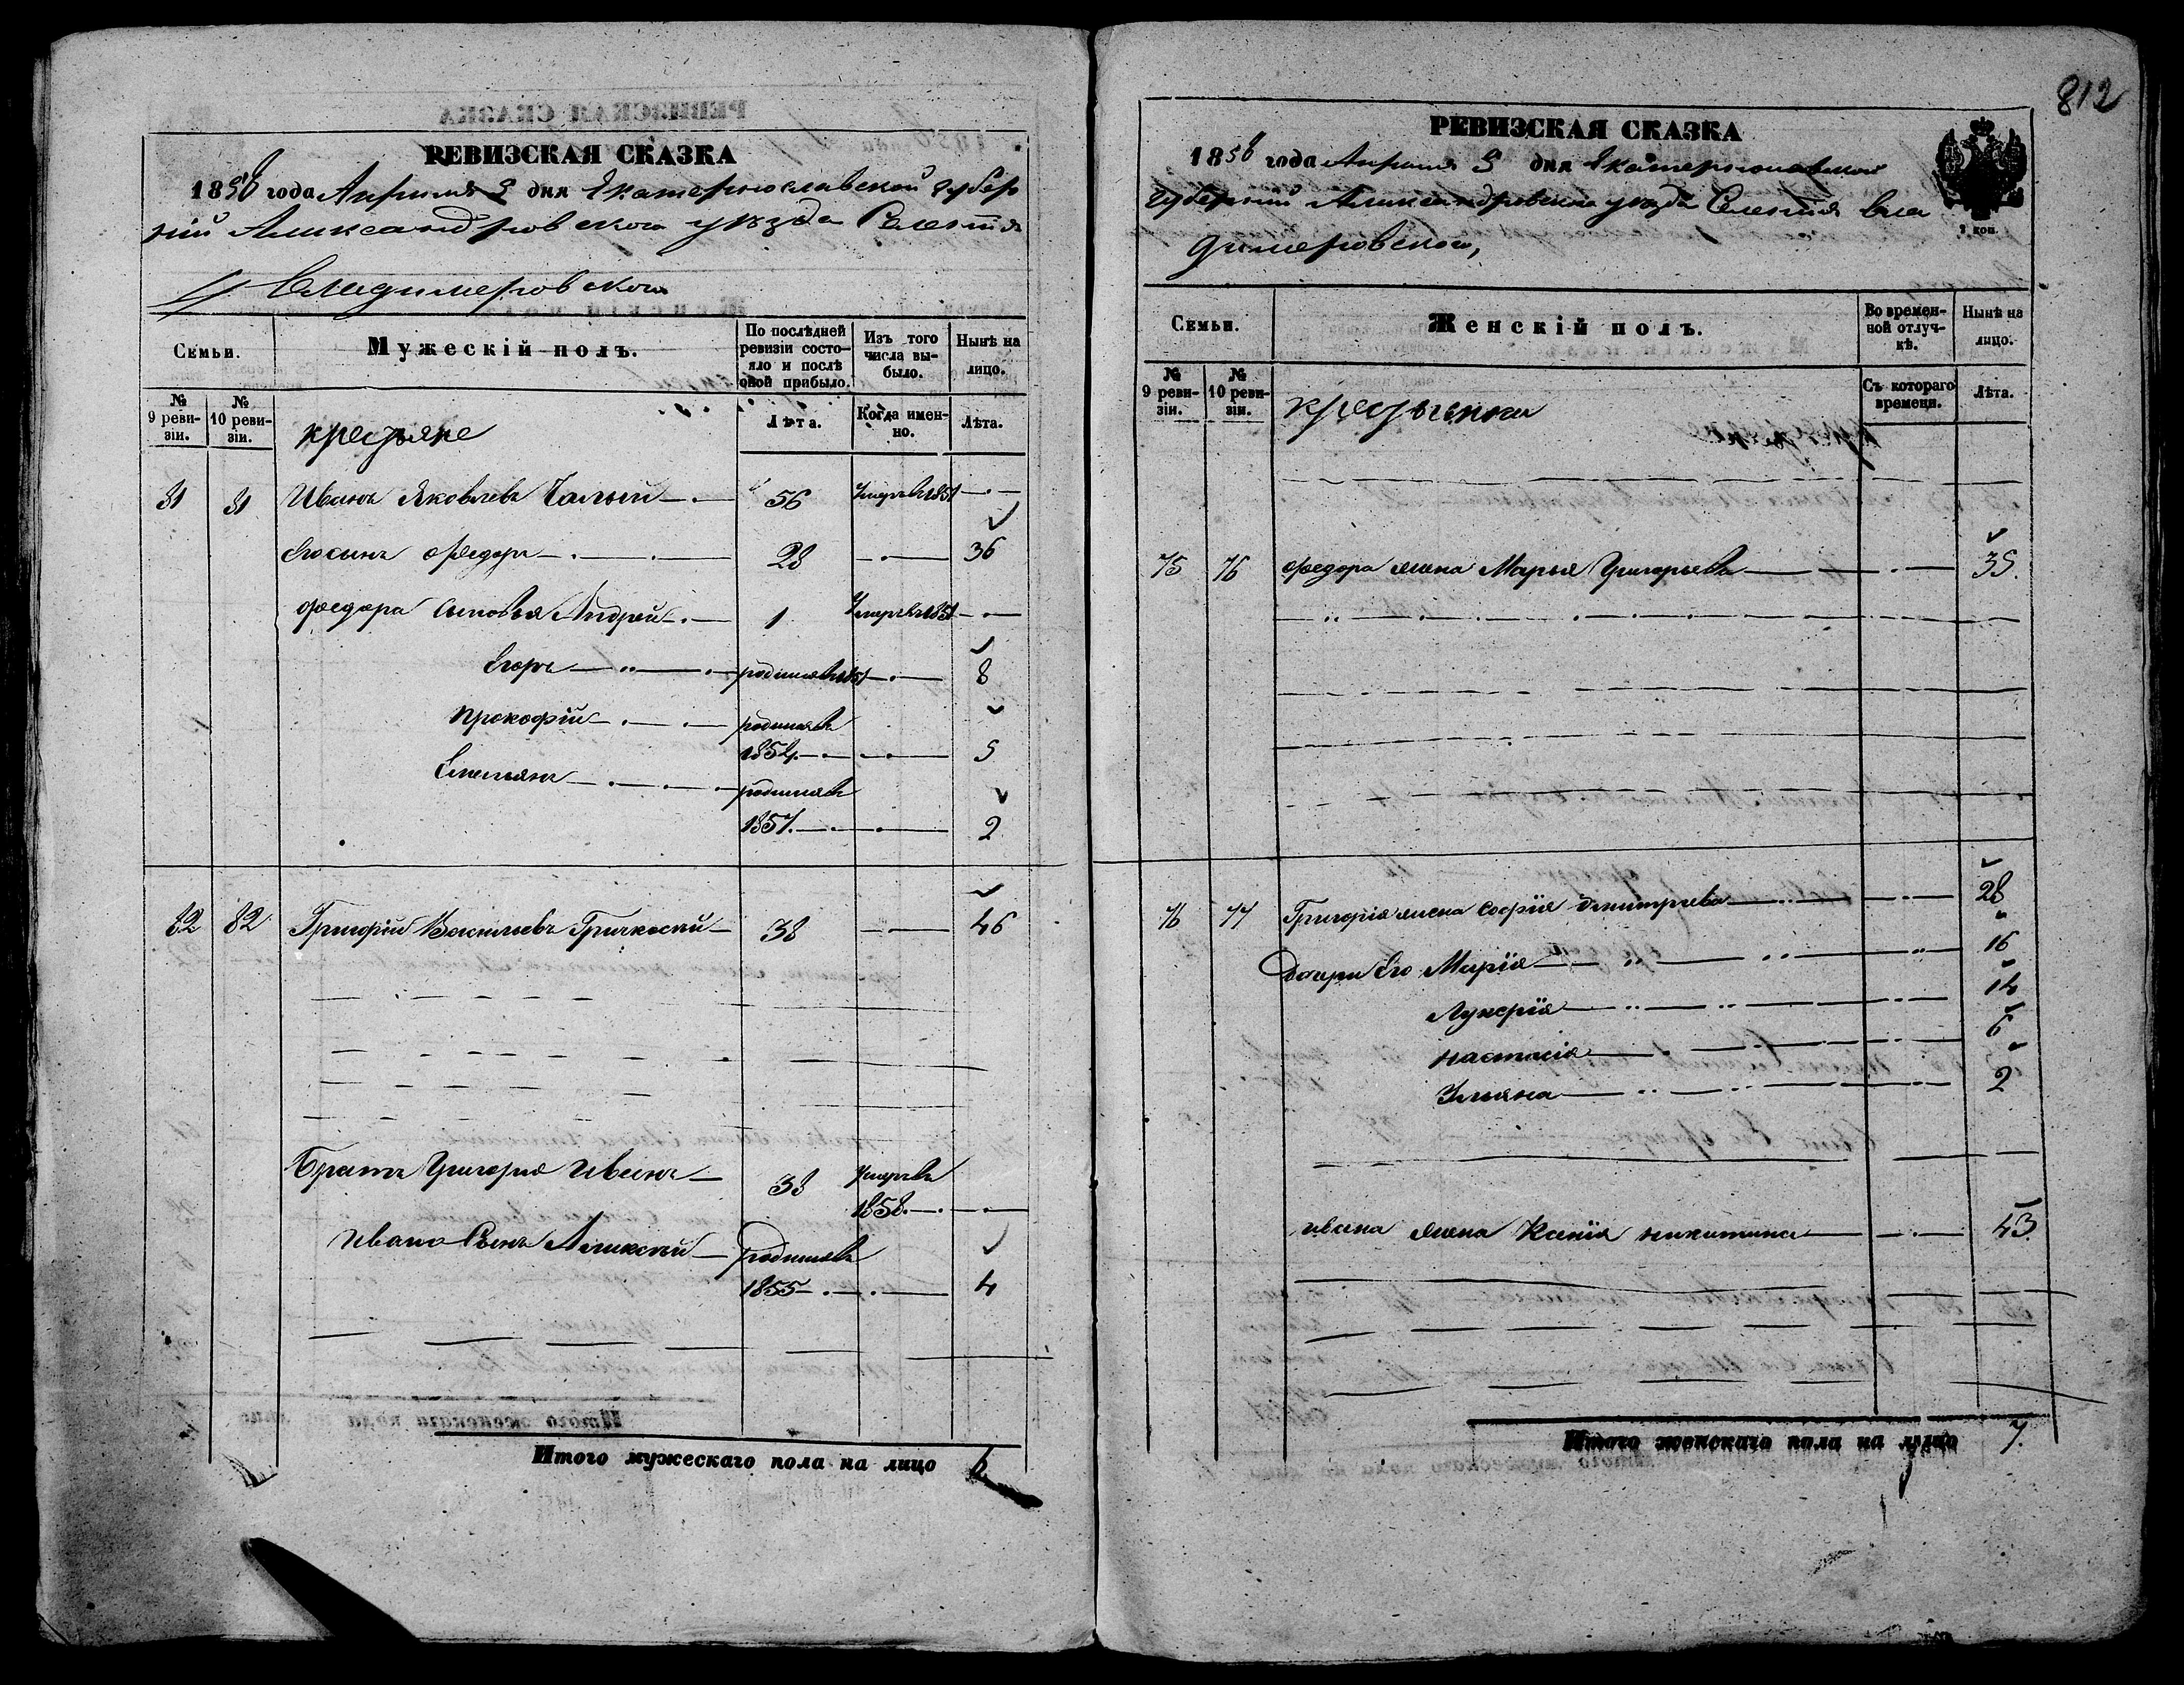 812
РЕВИЗСКАЯ СКАЗКА
1858 года Апреля 9 дня Екатеринославской губер
ніи Александровскаго уезда Селенія
Владимеровскаго
Семьи.
Мужескій полъ.
По послѣдней ревизіи состояло и послѣ оной прибыло.
Изъ того числа выбыло.
Нынѣ на лицо.
№ 9 ревизіи.
№ 10 ревизіи.
крестьяне
Лѣта.
Когда именно.
Лѣта.
81 81 Иванъ Яковлевъ Чалый 56 Умеръ въ 1851
Его сынъ Федоръ 28 36
Федора сыновья Андрей 1 Умеръ въ 1851
Егоръ родился въ 1851 8
Прокофій родился въ
1854 5
Емельянъ родился въ
1857 2
82 82 Григорій Васильевъ 38 46
Братъ Григорія Иванъ 38 Умеръ въ
1858
Ивана сынъ Алексѣй родился въ
1855 4
Итого мужескаго пола на лицо 6
РЕВИЗСКАЯ СКАЗКА
1858 года Апреля 9 дня Екатеринославской
губерніи Александровскаго уезда Селенія Вла
димеровскаго,
2 коп.
Семьи.
Женскій полъ.
Во временной отлучкѣ.
Нынѣ на лицо.
№ 9 ревизіи.
№ 10 ревизіи.
крестьянки
Съ котораго времени.
Лѣта.
75 76 Федора жена Марья Григорьева 35.
76 77 Григорія жена Софія Дмитрева 28
Дочери Его Марія 16
Лукерія 14
Настасія 6
Ульяна 2
Ивана жена Ксенія Никитина 43
Итого женскаго пола на лицо 7.